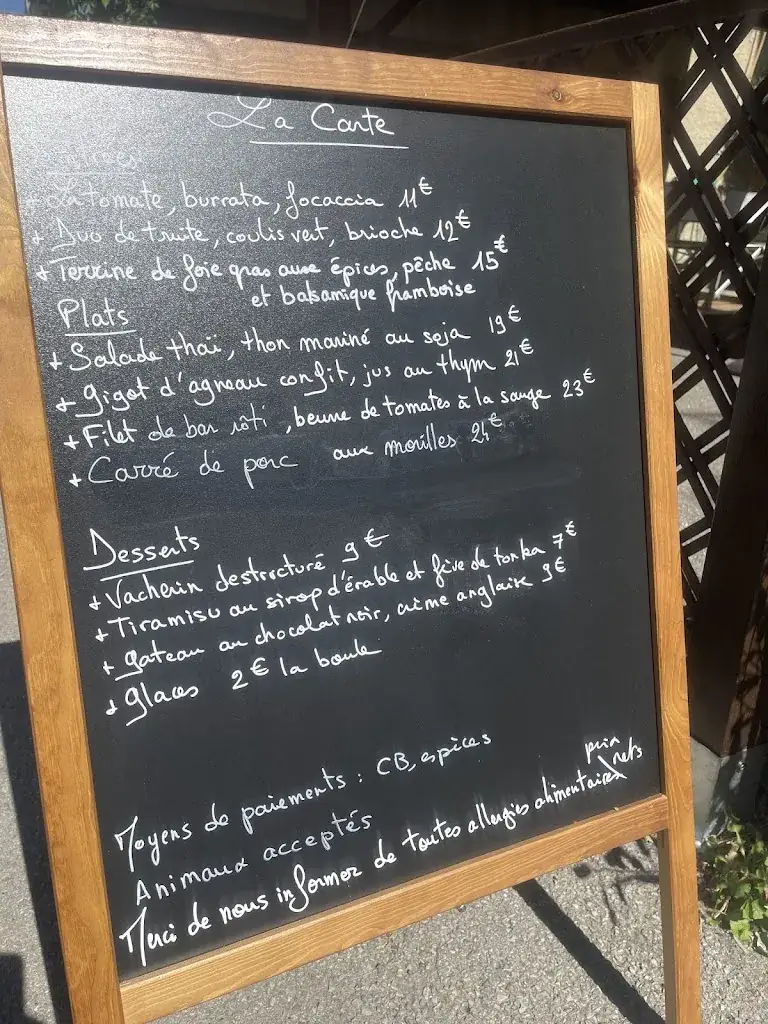 La Carte
Entrées
+ La tomate, burrata, focaccia 11€
+ Duo de truite, coulis vert, brioche 12€
+ Terrine de foie gras aux épices, pêche 15€
et balsamique framboise
Plats
+ Salade thaï, thon mariné au soja 19€
+ Gigot d'agneau confit, jus au thym 21€
+ Filet de bar rôti, beurre de tomates à la sauge 23€
+ Carré de porc aux morilles 24€
Desserts
+ Vacherin destructuré 9€
+ Tiramisu au sirop d'érable et fève de tonka 7€
+ gateau au chocolat noir, crème anglaise 9€
+ glaces 2€ la boule
Moyens de paiements : CB, espèces
prix nets
Animaux acceptés
Merci de nous informer de toutes allergies alimentaires